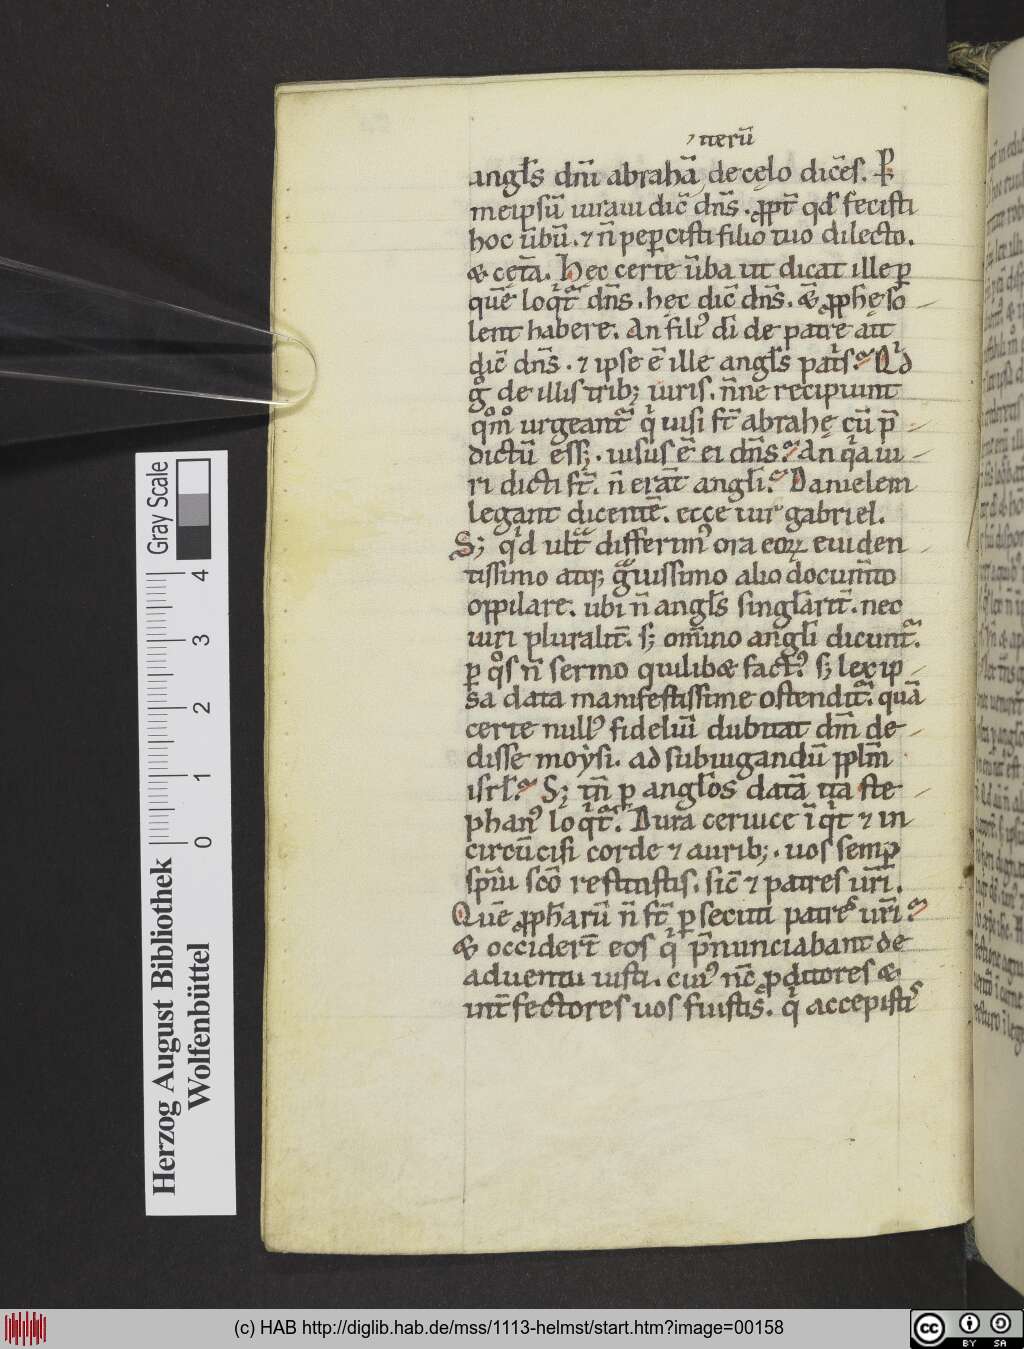 ⁊ iterū
angl̄s dn̄i abrahā de cęlo dic̄es. ꝑ
meipsū iuraui dic̄ dn̄s. ꝓpt̄ qd̄ fecisti
hoc ūbū. ⁊ n̄ peꝑcisti filio tuo dilecto.
& cet̄a. Hec certe ūba ut dicat ille ꝑ
quē loqͥt̄ᷓ dn̄s. hęc dic̄ dn̄s. & ꝓphę so
lent habere. An fili᾽ di̅ de patre ait
dic̄ dn̄s. ⁊ ipse ē ille angl̄s pat̄s. Qͥd
gͦ de illis trib; uiris. n̄ne recipiunt
qͦmͦ urgeantᷓ qͥ uisi st̄ abrahę cū p̄
dictū ess; . uisus ē ei dn̄s. An qͥa ui
ri dicti st̄. n̄ erāt angli̅. Danielem
legant dicentē. ecce uir gabriel.
S; qͥd ult̄ᷓ differim᾽ ora eoꝝ euiden
tissimo atq; gᷓuissimo alio docum̄to
oppilare. ubi n̄ angl̄s singl̄arit̄. nec
uiri pluralit̄. s; om̄ino angli̅ dicuntᷓ.
ꝑ qͦs n̄ sermo quilib& fact᾽ s; lex ip
sa data manifestissime ostenditᷓ. quā
certe null᾽ fideliū dubitat dm̄ de
disse moẏsi. ad subiugandū ppl̄m
isrl̄. S; tn̄ ꝑ angl̄os datā ita ste
phan᾽ loqͥt̄ᷓ. Dura ceruice ī qͥt̄ ⁊ in
circūcisi corde ⁊ aurib;. uos semꝑ
spiū scō restitistis. sic̄ ⁊ patres ur̄i.
Quē ꝓphar̄ū n̄ st̄ ꝑsecuti patres ur̄i
& occider̄t eos qͥ p̄nunciabant de
aduentu iusti. cui᾽ nc̄ ꝓditores &
int̄fectores uos fuistis. qͥ accepisti
Gray Scale
4
3
2
1
0
Herzog August Bibliothek
Wolfenbüttel
(c) HAB http://diglib.hab.de/mss/1113-helmst/start.htm?image=00158
cc BY SA